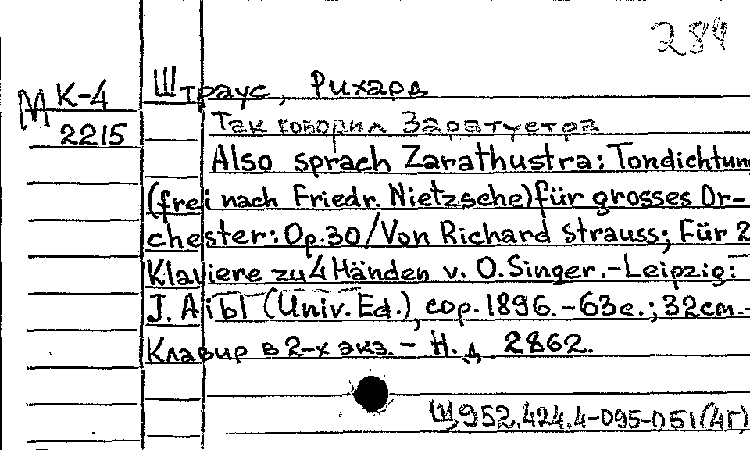 284
М К-4
2215
Штраус, Рихард
Так говорил Заратустра
Also sprach Zarathustra: Tondichtun
(frei nach Friedr. Nietzsche) für grosses Or-
chester: Op.30/Von Richard Strauss; Für 2
Klaviere zu 4 Händen v. O. Singer.-Leipzig:
J. Aibl (Univ. Ed.), cop. 1896.-63c.; 32cm.-
Клавир в 2-х экз. - Н.д. 2862.
Щ952.424.4-095-051(4Г)